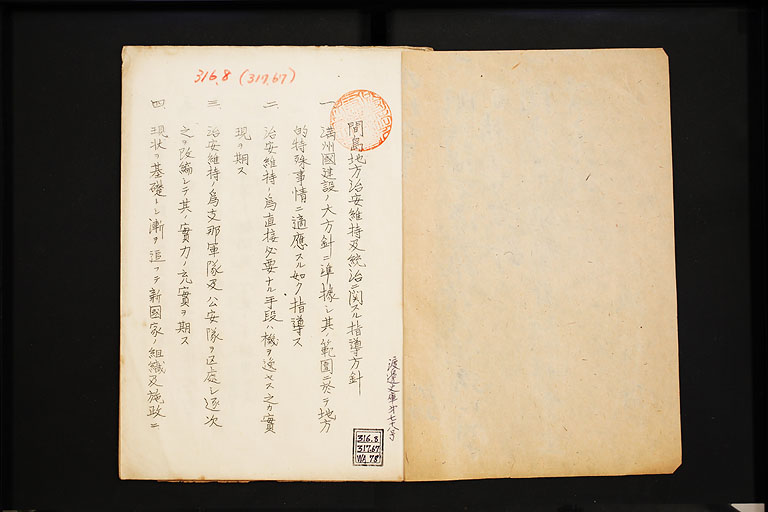 316.8 (317.67)
間島地方治安維持及統治ニ関スル指導方針
一 満州國建設ノ大方針ニ準據シ其ノ範圍ニ於テ地方
的特殊事情ニ適應スル如ク指導ス
二 治安維持ノ爲直接必要ナル手段ハ機ヲ逸セス之カ實
現ヲ期ス
三 治安維持ノ爲支那軍隊及公安隊ヲ区處シ逐次
之ヲ改編シテ其ノ實力ノ充實ヲ期ス
四 現状ヲ基礎トシ漸ヲ追フテ新國家ノ組織及施政ニ
渡邊文庫第七八号
316.8
317.67
W 78